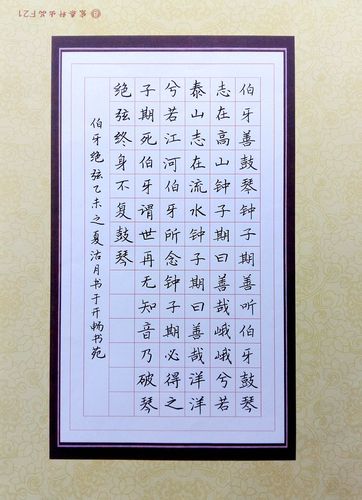 伯牙善鼓琴钟子期善听伯牙鼓琴
志在高山钟子期曰善哉峨峨兮若
泰山志在流水钟子期曰善哉洋洋
兮若江河伯牙所念钟子期必得之
子期死伯牙谓世再无知音乃破琴
绝弦终身不复鼓琴
伯牙绝弦乙未之夏洁月书于开畅书苑
F21